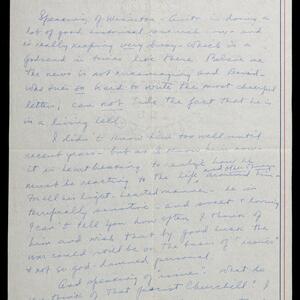 Speaking of Winston - Anita is doing a
lot of good historical research - now - and
is really keeping very busy - which is a
godsend in times like these. Believe me
the news is not encouraging and
who tries so hard to write the most cheerful
letters, can not hide the fact that he is
in a living hell.
I didn't know him too well until
recent years - but as I know him now
it is heartbreaking to realize how he
must be reacting to the life and things around him
For all his light-hearted manner - he is
terrifically sensitive - and sweet & loving
I can't tell you how often I think of
him and wish that by good luck the
war could still be on the basis of "issues"
& not so god-damned personal.
And speaking of "issues". What do
you think of That Fascist Churchill? I